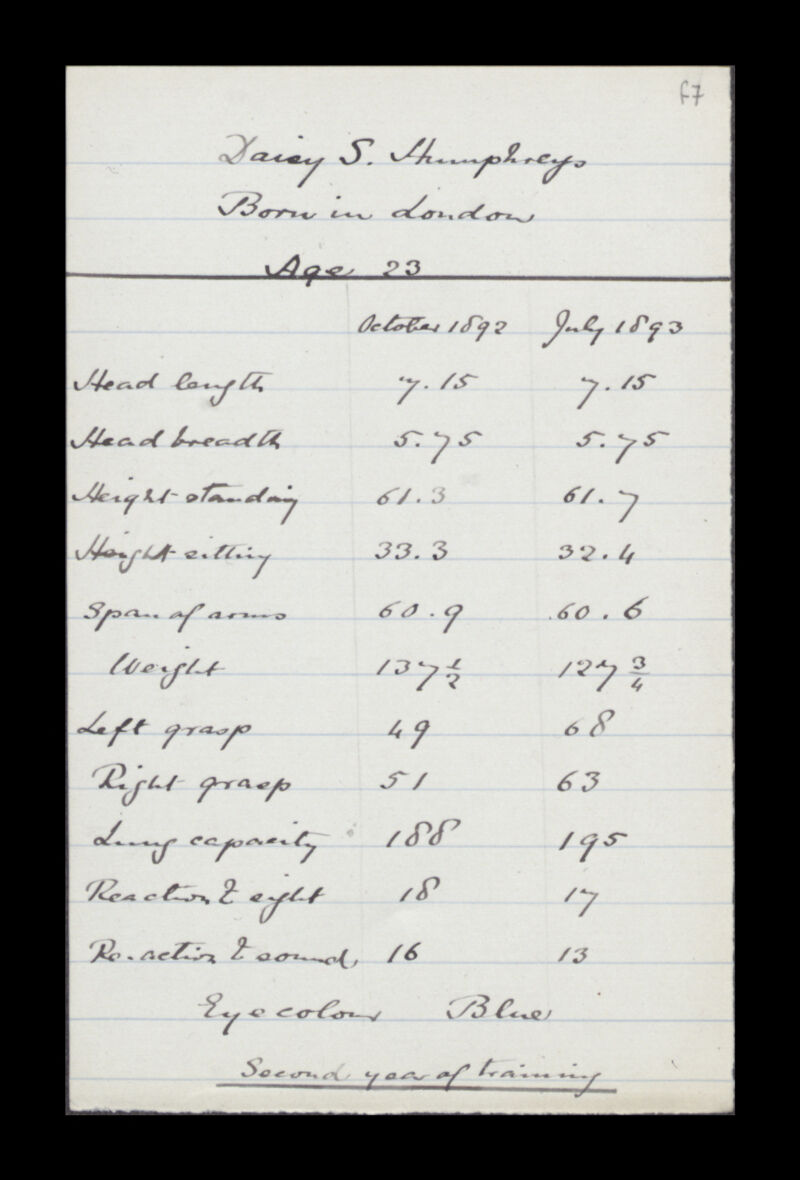 f7
Daisy S. Humphreys
Born in London
Age 23
October 1892 July 1893
Head length 7.15 7.15
Head breadth 5.75 5.75
Height standing 61.3 61.7
Height sitting 33.3 32.4
Span of arms 60.9 60.6
Weight 137 1/2 127 3/4
Left grasp 49 68
Right grasp 51 63
Lung capacity 188 195
Reaction to sight 18 17
Re-action to sound 16 13
Eye colour Blue
Second year of training